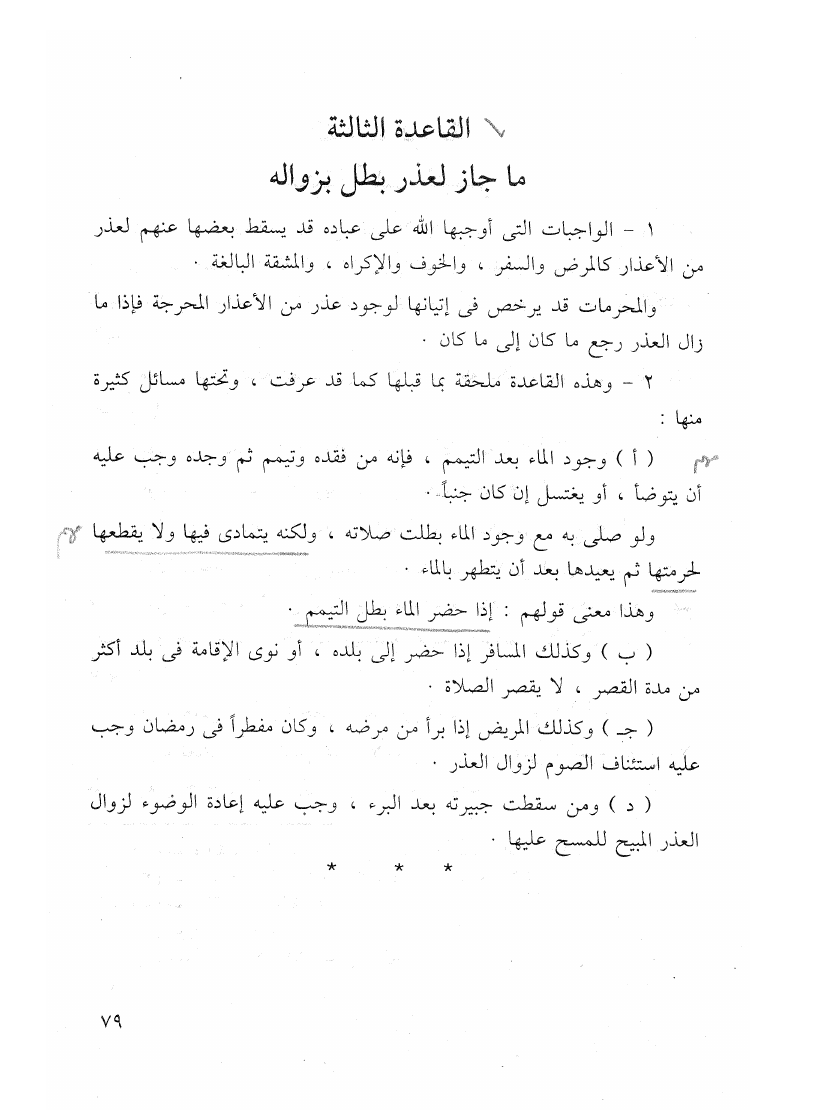 القاعدة الثالثة
ما جاز لعذر بطل بزواله
١ - الواجبات التى أوجبها الله على عباده قد يسقط بعضها عنهم لعذر
من الأعذار كالمرض والسفر ، والخوف والإكراه ، والمشقة البالغة .
والمحرمات قد يرخص فى إتيانها لوجود عذر من الأعذار المحرجة فإذا ما
زال العذر رجع ما كان إلى ما كان .
٢ - وهذه القاعدة ملحقة بما قبلها كما قد عرفت ، وتحتها مسائل كثيرة
منها :
( أ ) وجود الماء بعد التيمم ، فإنه من فقده وتيمم ثم وجده وجب عليه
أن يتوضأ ، أو يغتسل إن كان جنباً .
ولو صلى به مع وجود الماء بطلت صلاته ، ولكنه يتمادى فيها ولا يقطعها
لحرمتها ثم يعيدها بعد أن يتطهر بالماء .
وهذا معنى قولهم : إذا حضر الماء بطل التيمم .
( ب ) وكذلك المسافر إذا حضر إلى بلده ، أو نوى الإقامة فى بلد أكثر
من مدة القصر ، لا يقصر الصلاة .
( جـ ) وكذلك المريض إذا برأ من مرضه ، وكان مفطراً فى رمضان وجب
عليه استئناف الصوم لزوال العذر .
( د ) ومن سقطت جبيرته بعد البرء ، وجب عليه إعادة الوضوء لزوال
العذر المبيح للمسح عليها .
* * *
٧٩